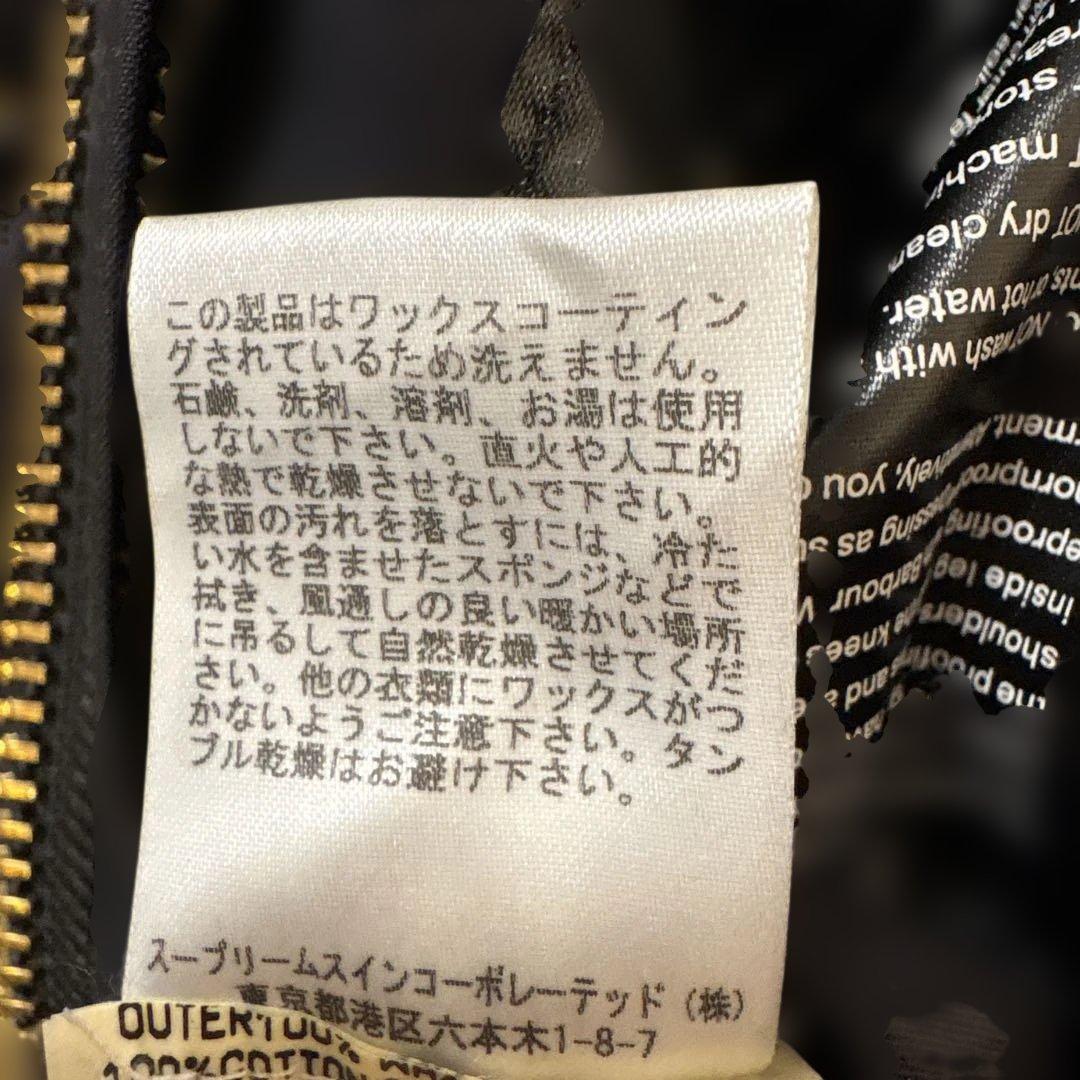 この製品はワックスコーティン
グされているため洗えません。
石鹸、洗剤、溶剤、お湯は使用
しないで下さい。直火や人工的
な熱で乾燥させないで下さい。
表面の汚れを落とすには、冷た
い水を含ませたスポンジなどで
拭き、風通しの良い暖かい場所
に吊るして自然乾燥させてくだ
さい。他の衣類にワックスがつ
かないようご注意下さい。タン
ブル乾燥はお避け下さい。
スープリームスインコーポレーテッド (株)
東京都港区六本木1-8-7
OUTER 100%
100% COTTON
the proofing
shoulders
inside leg
and
knees
Barbour
as
you
wash with
hot water.
dry clean
machi